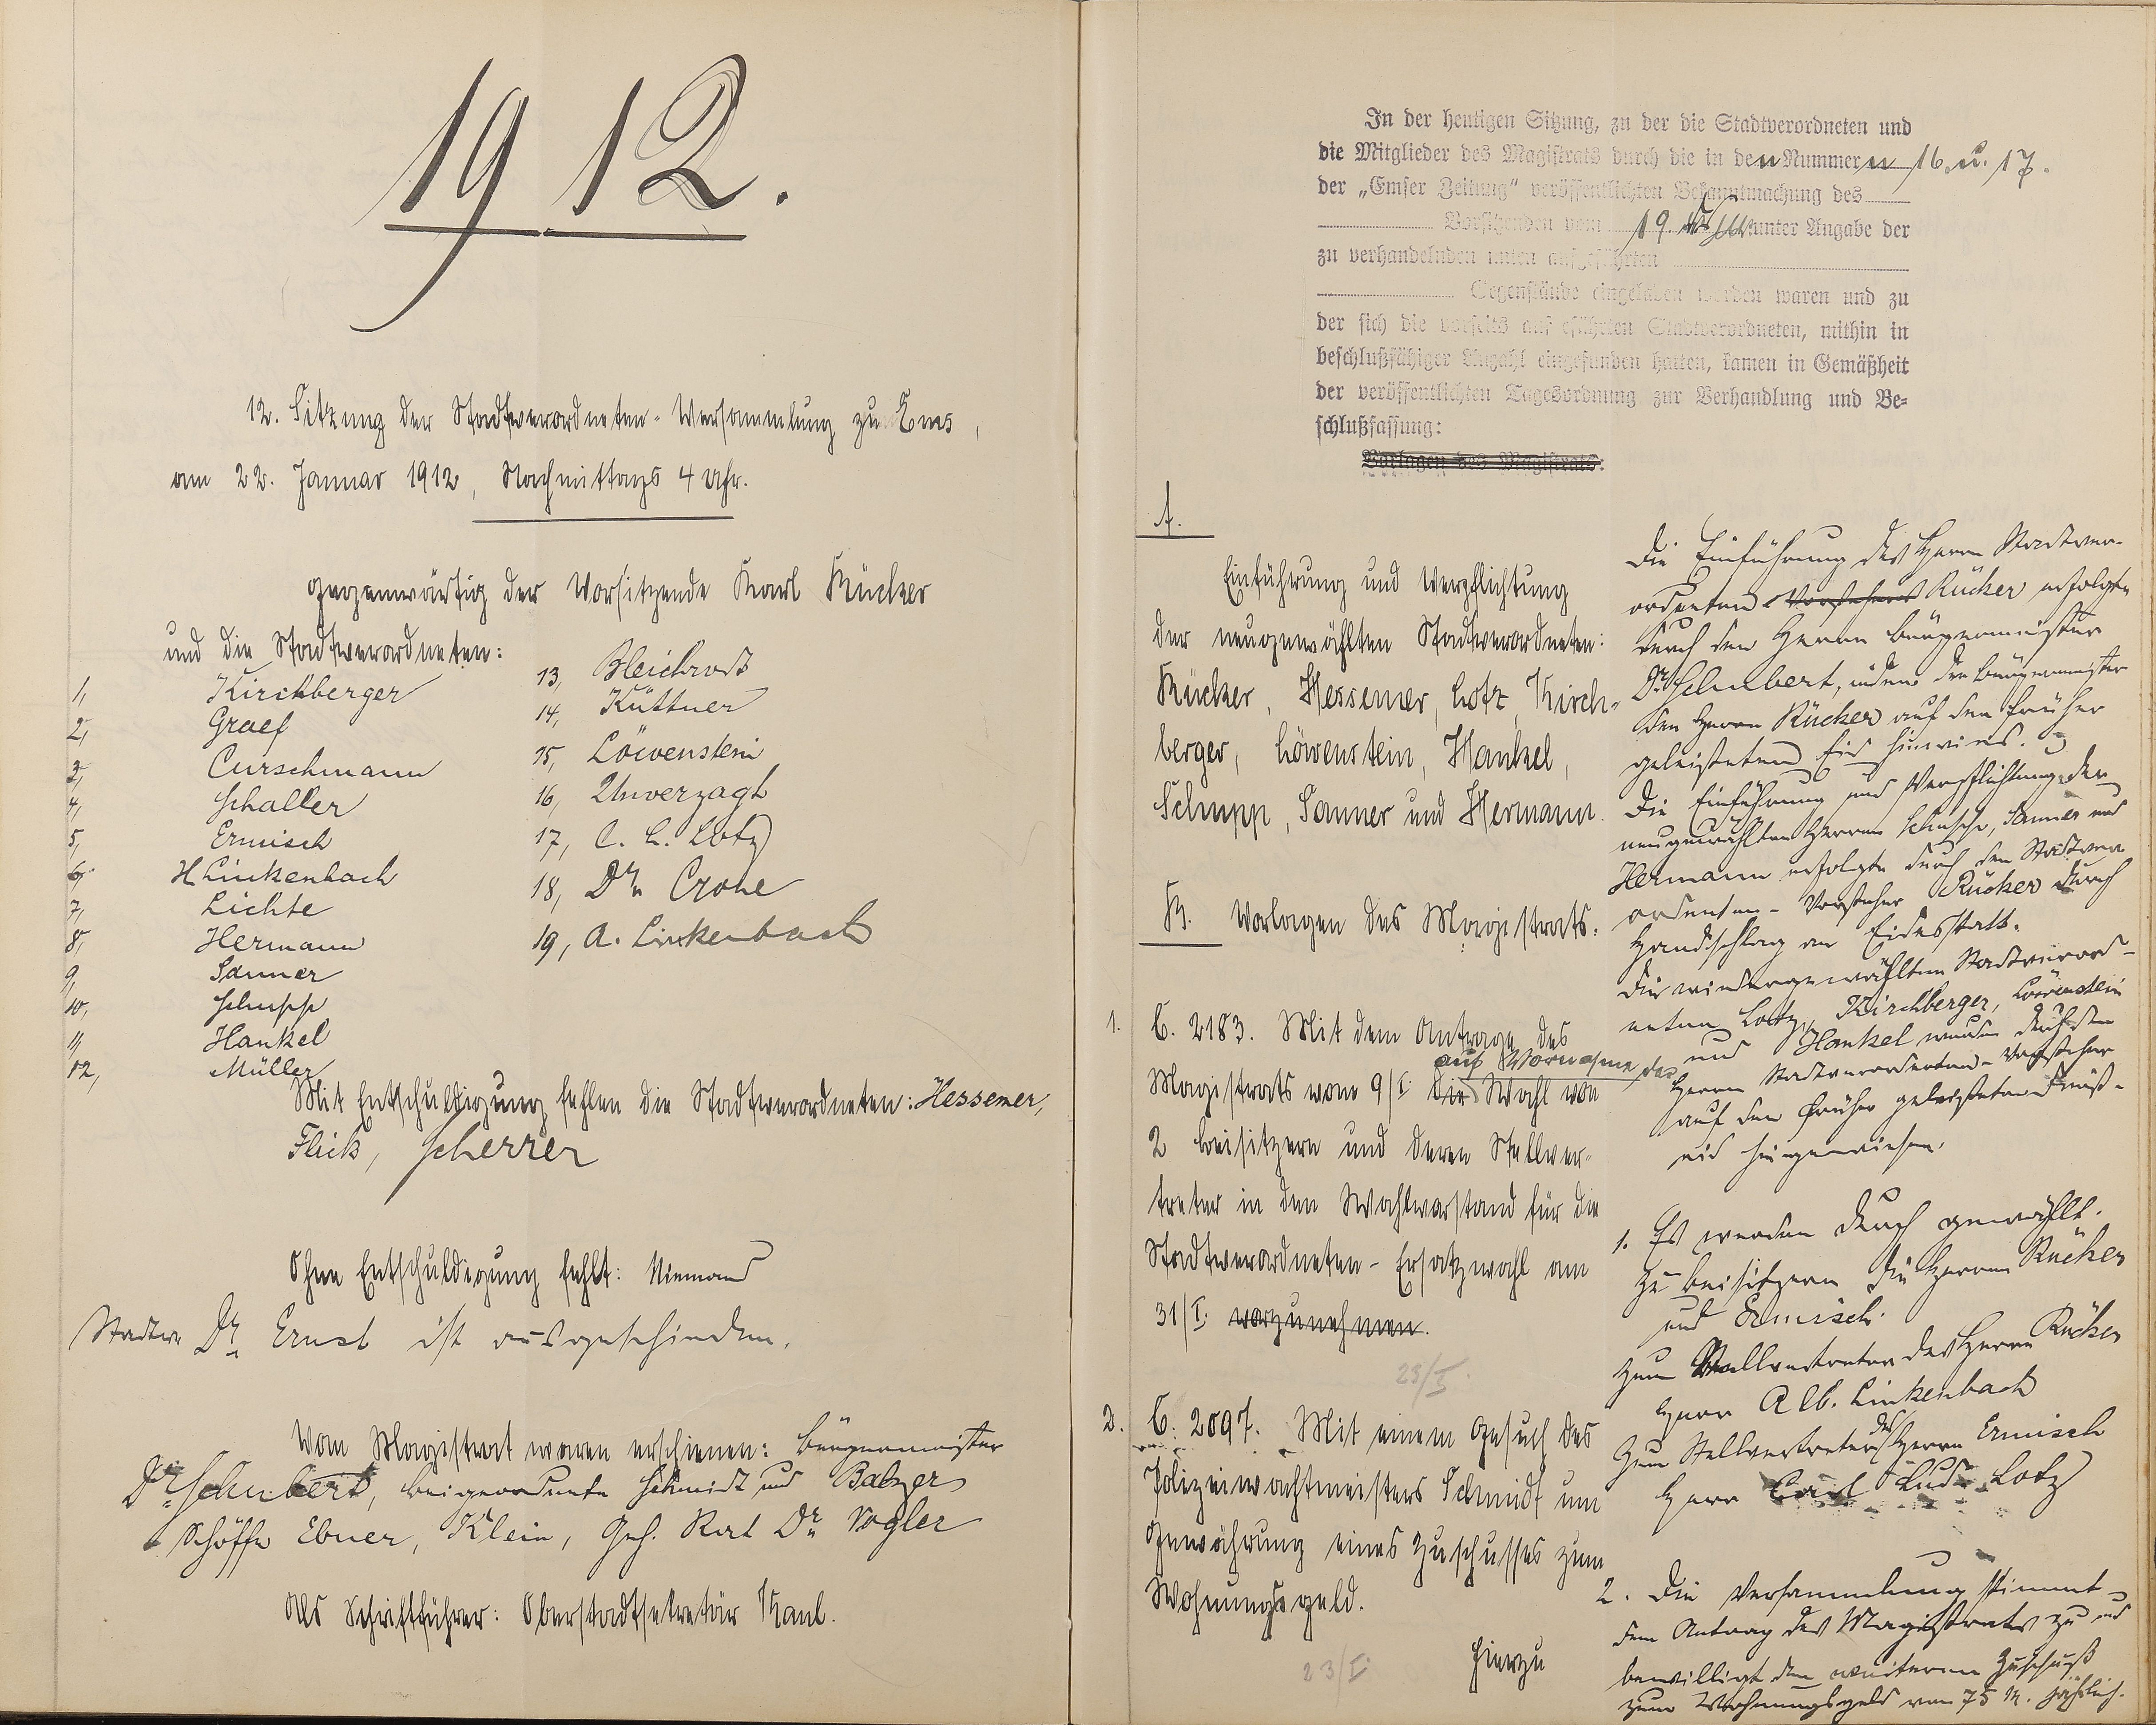 1912.
12. Sitzung der Stadtverordneten-Versammlung zu Ems,
am 22. Januar 1912, Nachmittags 4 Uhr.
Gegenwärtig der Vorsitzende Karl Rücker
und die Stadtverordneten:
1, Kirchberger
2, Graef
3, Curschmann
4, Schaller
5, Ermisch
6, H Linkenbach
7, Lichte
8, Hermann
9, Sanner
10, Schupp
11, Hankel
12, Müller
13, Bleichrodt
14, Küttner
15, Löwenstein
16, Unverzagt
17, C. L. Lotz
18, Dr. Crohe
19, A. Linkenbach
Mit Entschuldigung fehlen die Stadtverordneten: Hessemer,
Flick, Scherrer
Ohne Entschuldigung fehlt: Niemand
Stadtv. Dr. Ernst ist ausgeschieden.
Vom Magistrat waren erschienen: Bürgermeister
Dr. Schubert, Beigeordnete Schmidt und Balzer
Schöffe Ebner, Klein, Geh. Rat Dr. Vogler
Als Schriftführer: Oberstadtsekretär Kaul.
In der heutigen Sitzung, zu der die Stadtverordneten und
die Mitglieder des Magistrats durch die in den Nummern 16. u. 17.
der „Emser Zeitung“ veröffentlichten Bekanntmachung des
Vorsitzenden vom 19. unter Angabe der
zu verhandelnden unten aufgeführten
Gegenstände eingeladen worden waren und zu
der sich die vorseits aufgeführten Stadtverordneten, mithin in
beschlußfähiger Anzahl eingefunden hatten, kamen in Gemäßheit
der veröffentlichten Tagesordnung zur Verhandlung und Be-
schlußfassung:
Vorlagen des Magistrats:
A.
Einführung und Verpflichtung
der neugewählten Stadtverordneten:
Rücker, Hessemer, Lotz, Kirch-
berger, Löwenstein, Hankel,
Schupp, Sanner und Hermann.
B. Vorlagen des Magistrats.
1. C. 2183. Mit dem Antrage des
Magistrats vom 9/I. die auf Vornahme der Wahl von
2 Beisitzern und deren Stellver-
treter in den Wahlvorstand für die
Stadtverordneten-Ersatzwahl am
31/I. vorzunehmen.
23/I.
2. C. 2097. Mit einem Gesuch des
Polizeiwachtmeisters Schmidt um
Gewährung eines Zuschusses zum
Wohnungsgeld.
23/I.
Hierzu
Die Einführung des Herrn Stadtver-
ordneten Vorstehers Rücker erfolgte
durch den Herrn Bürgermeister
Dr. Schubert, indem der Bürgermeister
den Herrn Rücker auf den früher
geleisteten Eid hinwies.
Die Einführung und Verpflichtung der
neugewählten Herren Schupp, Sanner und
Hermann erfolgte durch den Stadtver-
ordneten-Vorsteher Rücker durch
Handschlag an Eidesstatt.
Die wiedergewählten Stadtverord-
neten Lotz, Kirchberger, Löwenstein
und Hankel wurden durch den
Herrn Stadtverordneten-Vorsteher
auf den früher geleisteten Dienst-
eid hingewiesen.
1. Es werden durch gewählt.
Zu Beisitzern die Herren Rücker
und Ermisch.
Zum Stellvertreter des Herrn Rücker
Herr Alb. Linkenbach
Zum Stellvertreter des Herrn Ermisch
Herr Carl Lud. Lotz
2. Die Versammlung stimmt
dem Antrag des Magistrats zu und
bewilligt den weiteren Zuschuß
zum Wohnungsgeld von 75 M. jährlich.